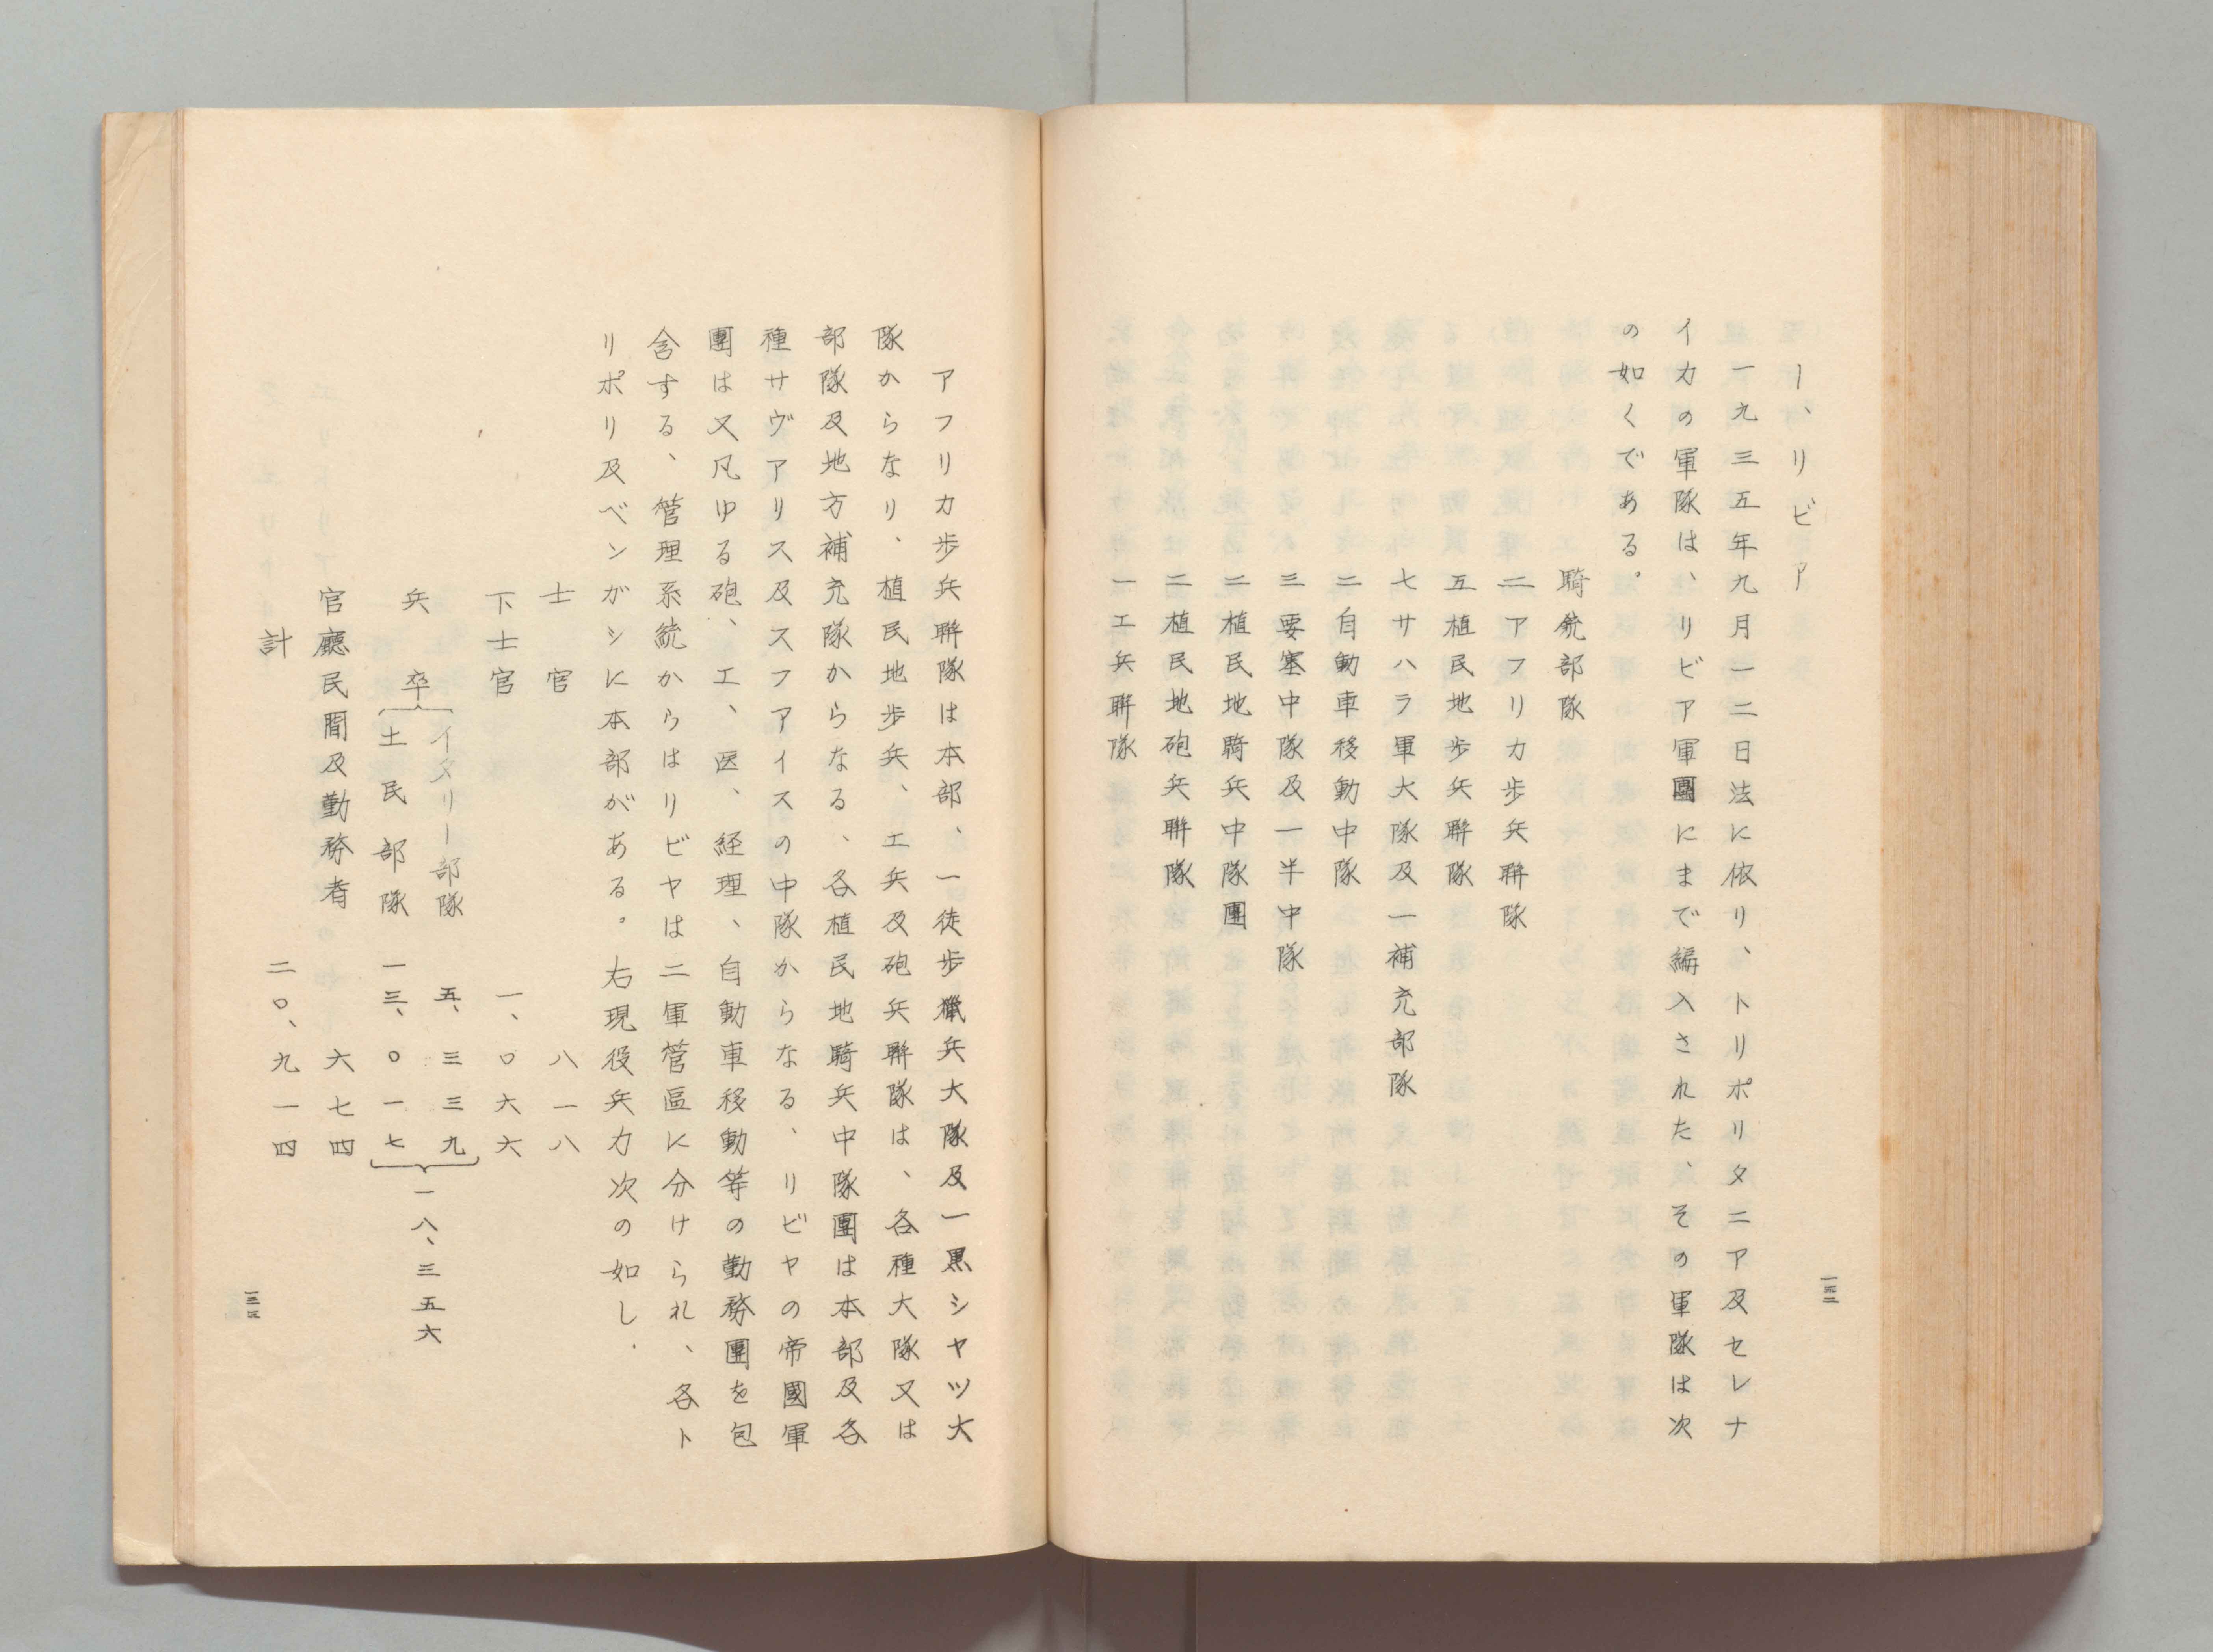 1、リビア
一九三五年九月一二日法に依り、トリポリタニア及セレナ
イカの軍隊は、リビア軍團にまで編入された、その軍隊は次
の如くである。
騎銃部隊
二アフリカ歩兵聯隊
五植民地歩兵聯隊
七サハラ軍大隊及一補充部隊
二自動車移動中隊
三要塞中隊及一半中隊
二植民地騎兵中隊團
二植民地砲兵聯隊
一工兵聯隊
アフリカ歩兵聯隊は本部、一徒歩獵兵大隊及一黒シヤツ大
隊からなり、植民地歩兵、工兵及砲兵聯隊は、各種大隊又は
部隊及地方補充隊からなる、各植民地騎兵中隊團は本部及各
種サヴアリス及スフアイスの中隊からなる、リビヤの帝國軍
團は又凡ゆる砲、工、医、経理、自動車移動等の勤務團を包
含する、管理系統からはリビヤは二軍管區に分けられ、各ト
リポリ及ベンガシに本部がある。右現役兵力次の如し.
士官 八一八
下士官 一、〇六六
兵卒 イタリー部隊 五、三三九
土民部隊 一三、〇一七 一八、三五六
官廳民間及勤務者 六七四
計 二〇、九一四